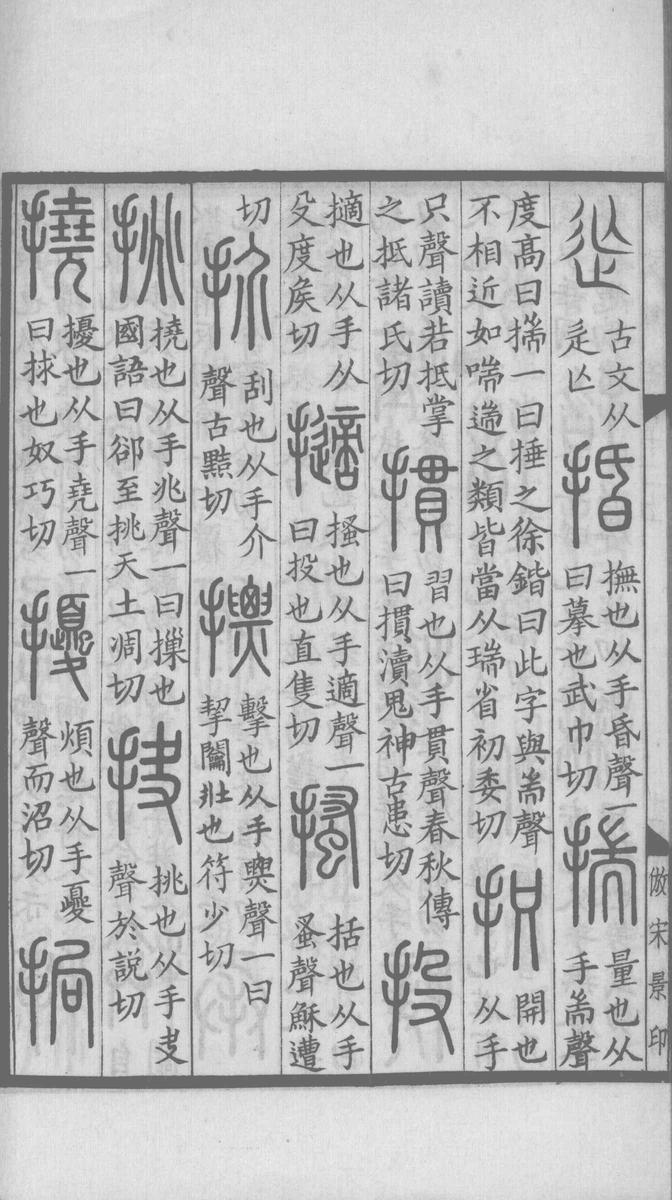 𢓊 古文从辵亾 揗 撫也从手昏聲一曰摹也武巾切 揣 量也从手耑聲
度高曰揣一曰捶之徐鍇曰此字與耑聲不相近如喘遄之類皆當从瑞省初委切 抧 開也从手
只聲讀若抵掌之抵諸氏切 摜 習也从手貫聲春秋傳曰摜瀆鬼神古患切 投
擿也从手从殳度矦切 擿 搔也从手適聲一曰投也直隻切 搔 括也从手蚤聲穌遭
切 扴 刮也从手介聲古黠切 摽 擊也从手㶾聲一曰挈闟壯也符少切
挑 撓也从手兆聲一曰摷也國語曰郤至挑天土凋切 抉 挑也从手夬聲於說切
撓 擾也从手堯聲一曰捄也奴巧切 擾 煩也从手憂聲而沼切 挶
倣宋景印